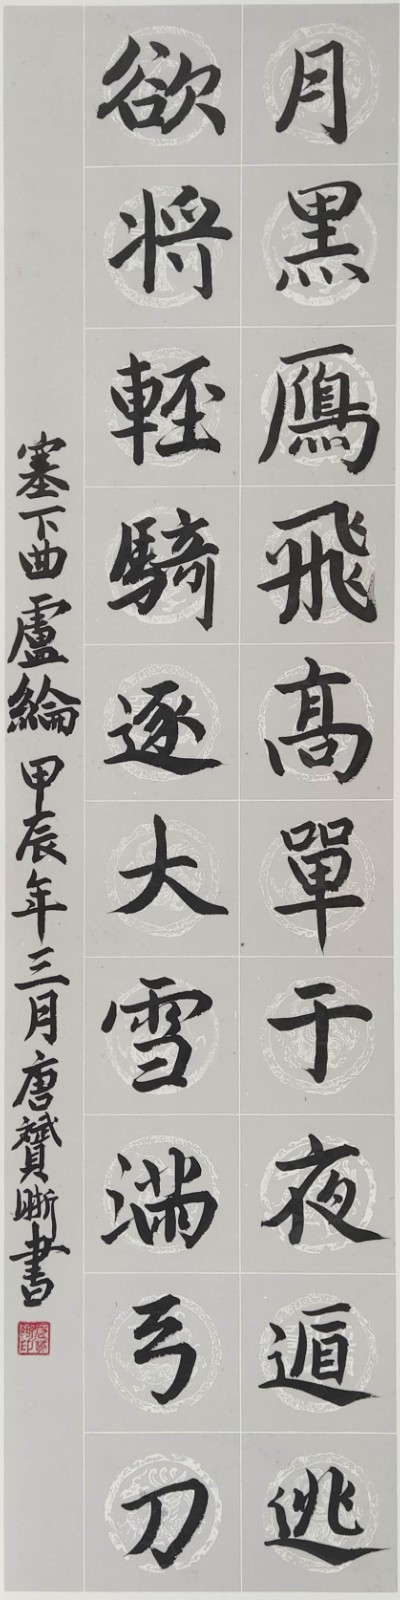 月黑鴈飛高單于夜遁逃
欲将輕騎逐大雪滿弓刀
塞下曲 盧綸 甲辰年三月 唐贇晰書